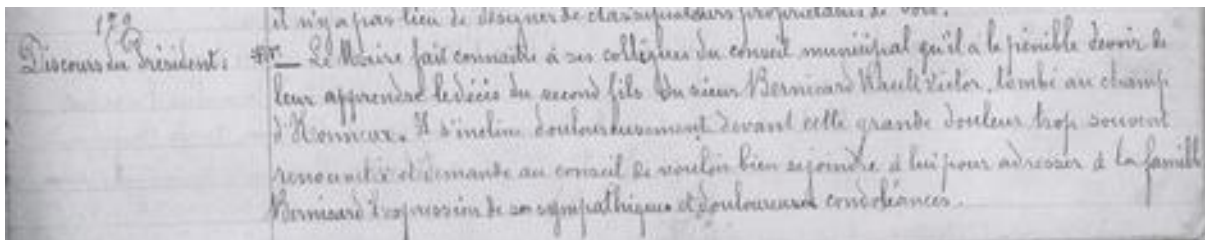 il n'y a pas lieu de désigner de classificateurs propriétaires de bois.
179
Discours du Président : Mr _ Le Maire fait connaitre à ses collègues du conseil municipal qu'il a le pénible devoir de
leur apprendre le décès du second fils du sieur Bernisard Victor, tombé au champ
d'Honneur. Il s'incline douloureusement devant cette grande douleur trop souvent
renouvelée et demande au conseil de vouloir bien se joindre à lui pour adresser à la famille
Bernisard l'expression de ses sympathiques et douloureuses condoléances.